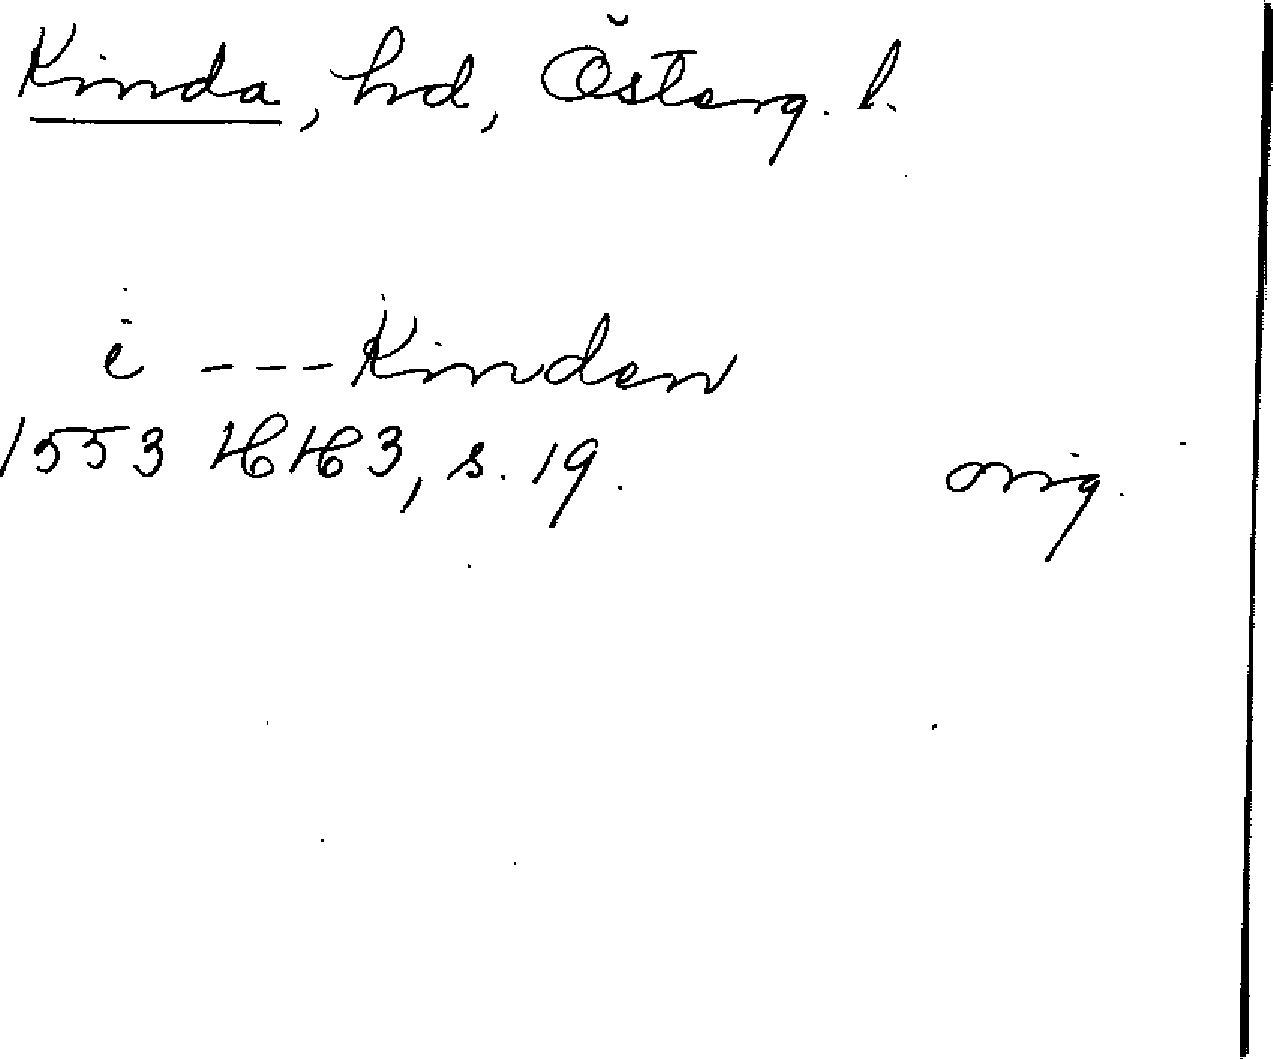 Kinda, hd, Österg. l.
i --- Kinden
1553 HH 3, s. 19. orig.